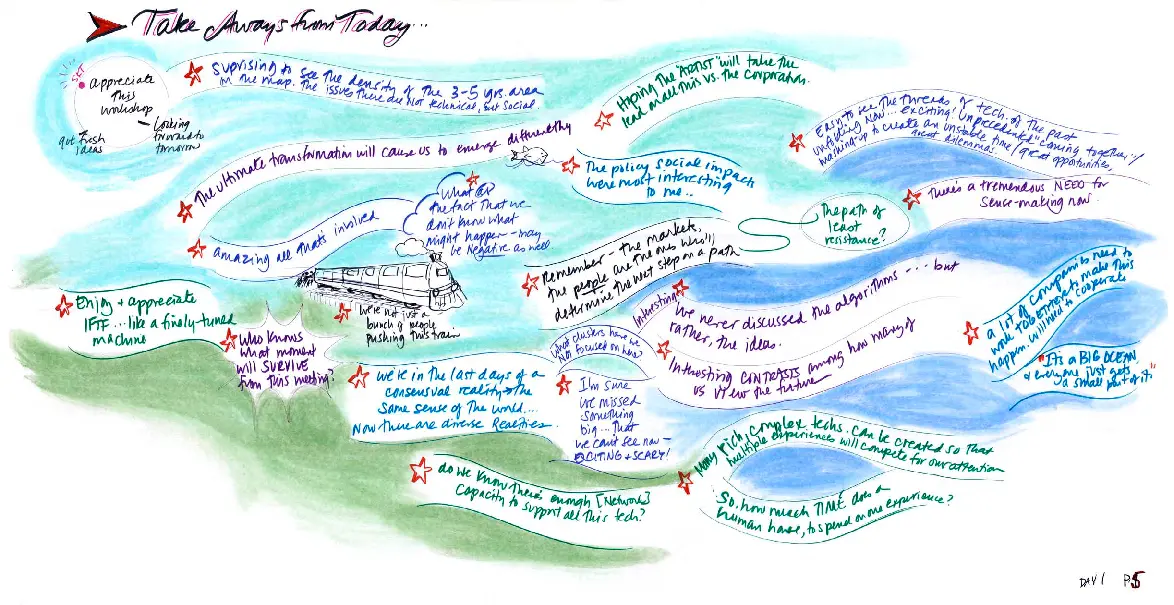 Take Aways from Today...
SET
appreciate
this
workshop
— Looking
forward to
tomorrow
got fresh
ideas
Suprising to see the density of the 3-5 yrs. area
on the map. The issues there are not technical, but social.
Hoping the "ARTIST" will take the
lead on all this vs. the Corporation.
to see the threads of tech. of the past
unfolding now... exciting! Unprecedented "coming together"/
mashing-up to create an unstable time/great opportunities,
great dilemma!
The ultimate transformation will cause us to emerge differently
The policy social impacts
were most interesting
to me...
There's a tremendous NEED for
sense-making now.
What
the fact that we
don't know what
might happen -- may
be Negative as well
amazing all that's involved
The path of
least
resistance?
Remember - the markets,
the people are the ones who'll
determine the next step on a path
Enjoy + appreciate
IFTF... like a finely-tuned
machine
we're not just a
bunch of people
pushing this train
Interesting
we never discussed the algorithms - ... but
rather, the ideas.
a lot of companies need to
work TOGETHER to make this
happen. will need to cooperate
who knows
what moment
will SURVIVE
from this meeting?
What clusters have we
NOT focused on here?
Interesting CONTRASTS among how many of
us view the future
"It's a BIG OCEAN,
& everyone just gets
a small part of it."
we're in the last days of a
consensual reality the
same sense of the world....
Now there are diverse Realities.
I'm sure
we missed
something
big... that
we can't see now -
EXCITING + SCARY!
Many rich, complex techs. can be created so that
multiple experiences will compete for our attention
do we know there's enough [Network]
capacity to support all this tech?
So, how much TIME does a
human have, to spend on one experience?
DAY 1 P.5